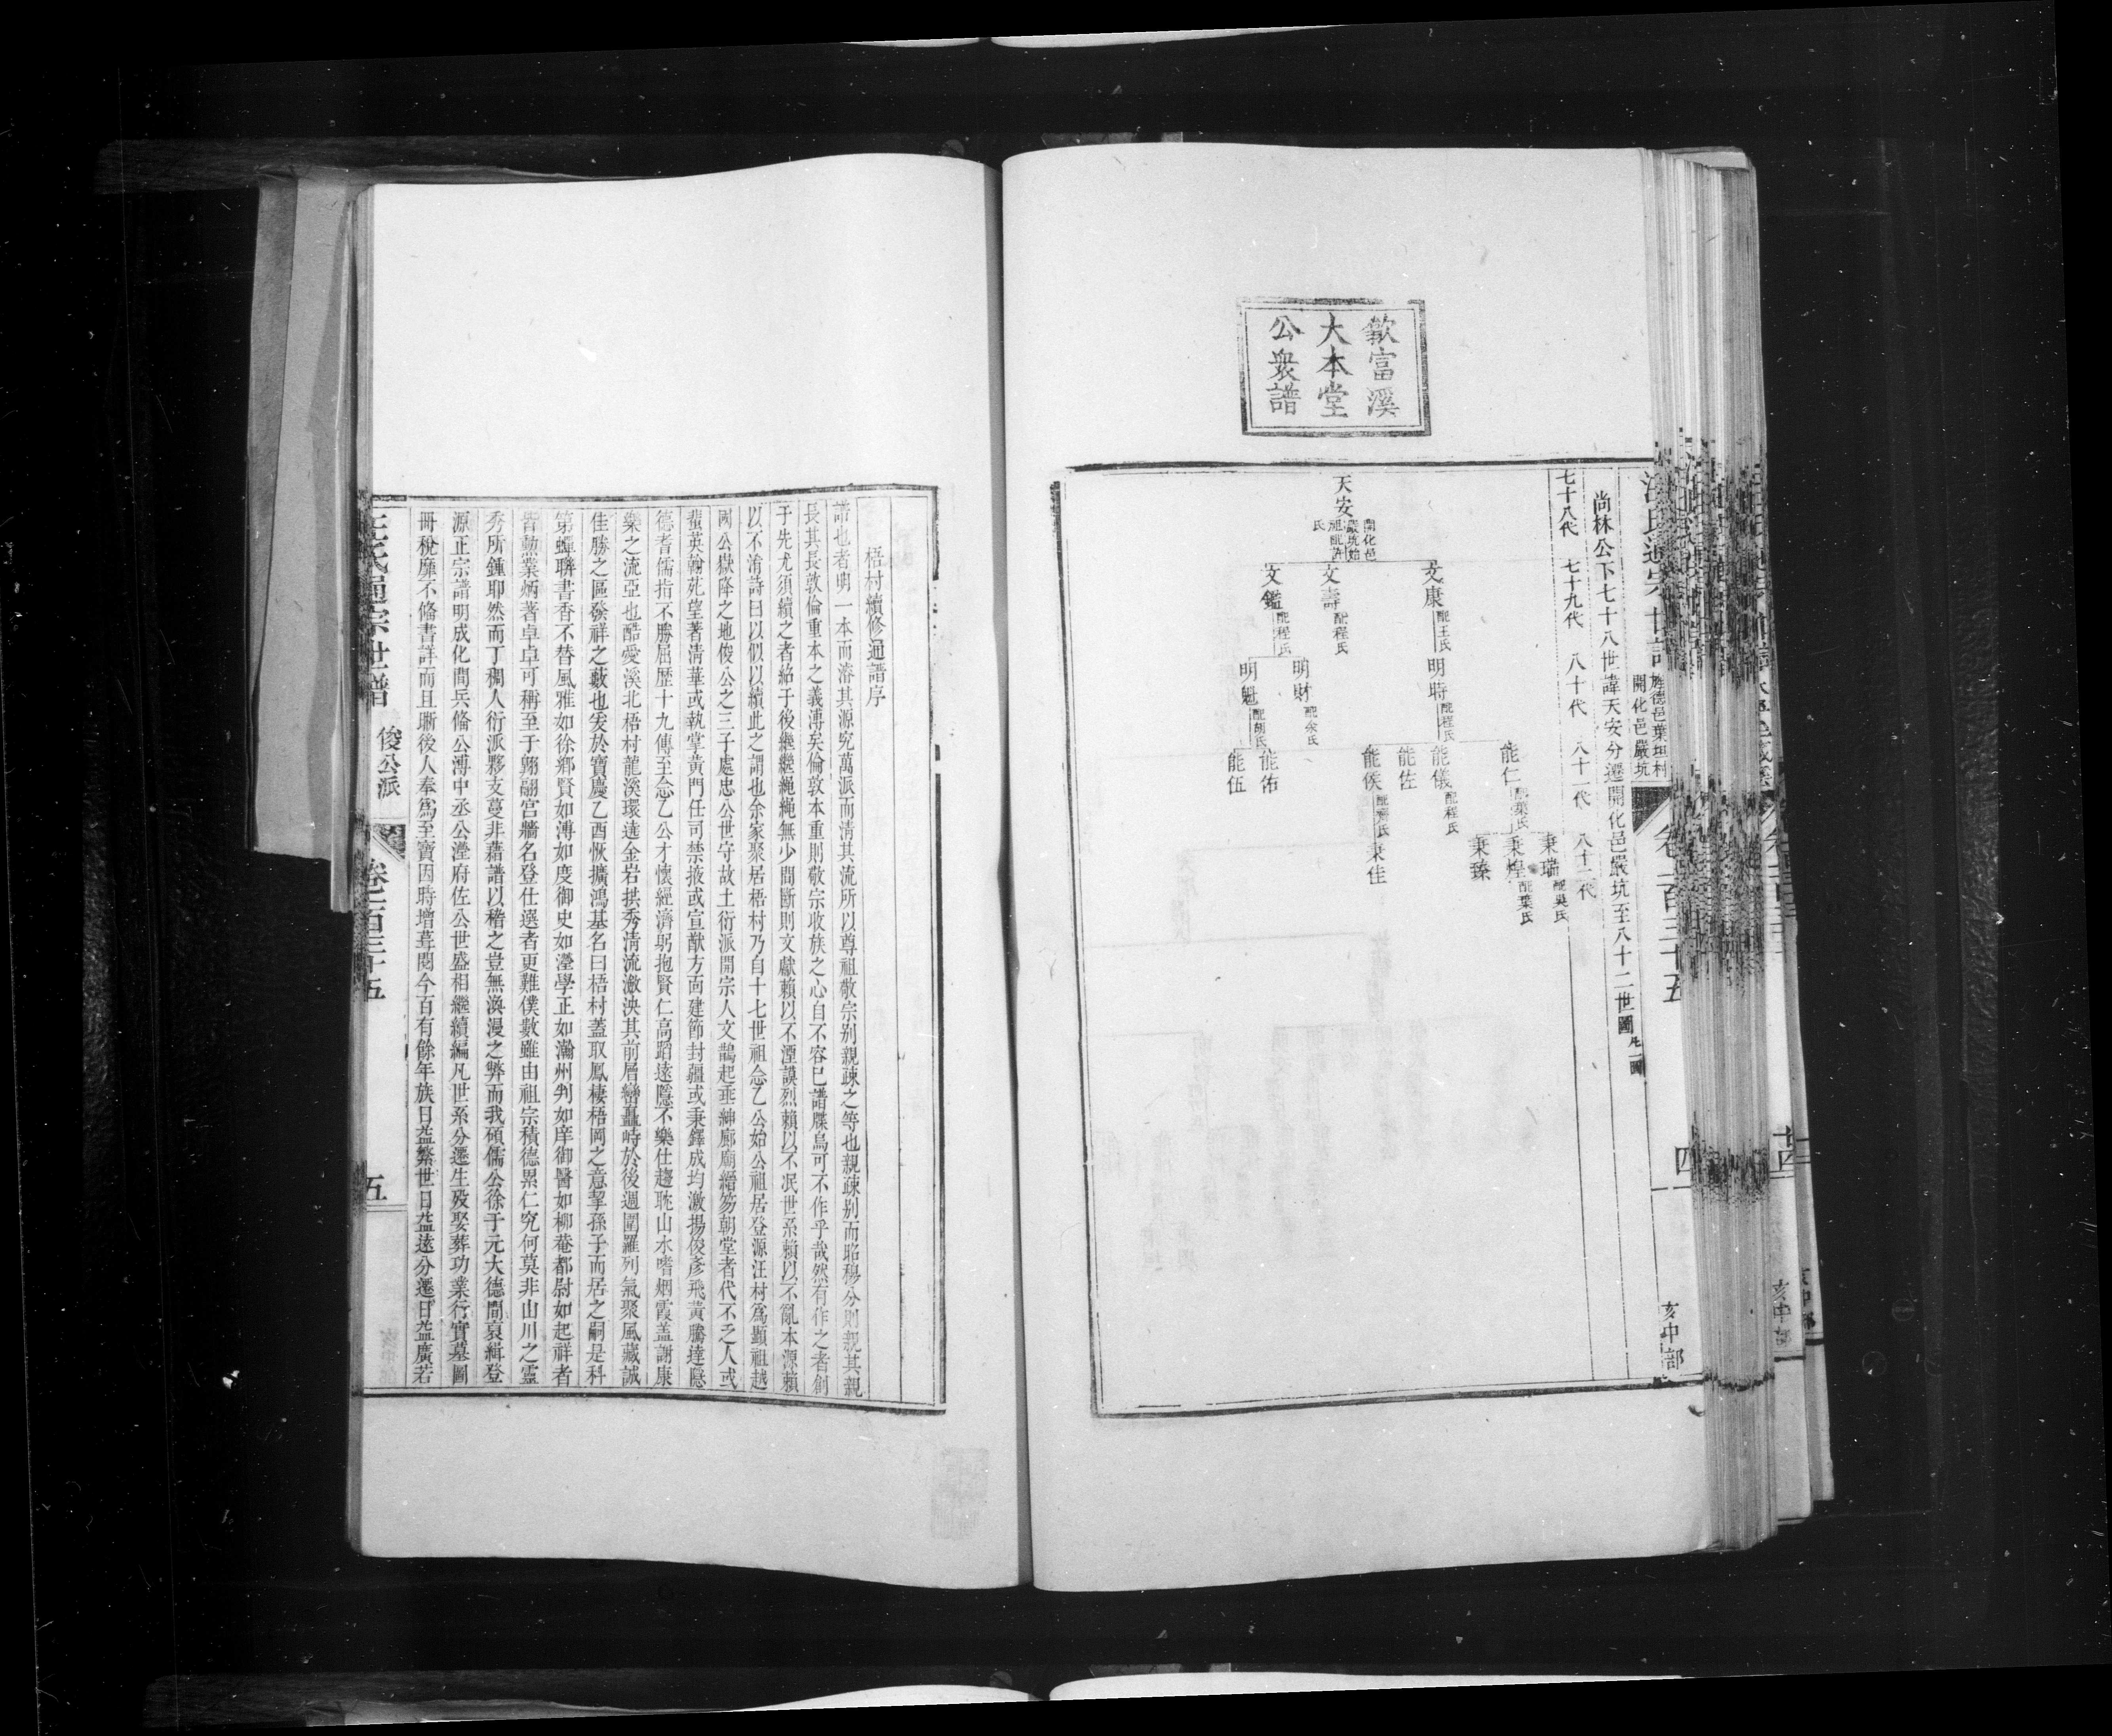 歙富溪
大本堂
公衆譜
汪氏通宗世譜
旌德邑葉坦村
開化邑嚴坑
卷一百三十五
四
亥中部
尚林公下七十八世諱天安分遷開化邑嚴坑至八十二世圖
七十八代 七十九代 八十代 八十一代 八十二代
天安 開化邑嚴坑始祖配許氏
文康 配王氏
文壽 配程氏
文鑑 配程氏
明時 配程氏
明財 配余氏
明魁 配胡氏
能仁 配葉氏
能儀 配程氏
能佐
能侯 配齊氏
能佑
能伍
秉瑞 配吳氏
秉煌 配葉氏
秉臻
秉佳
梧村續修通譜序
譜也者明一本而濬其源究萬派而淸其流所以尊祖敬宗别親疎之等也親疎别而昭穆分則親其親
長其長敦倫重本之義溥矣倫敦本重則敬宗收族之心自不容已譜牒烏可不作乎哉然有作之者創
于先尤須續之者紹于後繼繼繩繩無少間斷則文獻賴以不湮謨烈賴以不泯世系賴以不亂本源賴
以不淆詩曰以似以續此之謂也余家聚居梧村乃自十七世祖念乙公始公祖居登源汪村爲顯祖越
國公嶽降之地俊公之三子處忠公世守故土衍派開宗人文鵲起垂紳廊廟縉笏朝堂者代不乏人或
蜚英翰苑望著淸華或執掌黄門任司禁掖或宣猷方面建節封疆或秉鐸成均激揚俊彦飛黄騰達隱
德耆儒指不勝屈歷十九傳至念乙公才懷經濟躬抱賢仁高蹈遠隱不樂仕趨眈山水嗜烟霞盖謝康
樂之流亞也酷愛溪北梧村龍溪環遶金岩拱秀淸流瀲泱其前層巒矗峙於後週圍羅列氣聚風藏誠
佳勝之區發祥之藪也爰於寶慶乙酉恢擴鴻基名曰梧村蓋取鳳棲梧岡之意挈孫子而居之嗣是科
第蟬聯書香不替風雅如徐鄉賢如溥如度御史如瀅學正如瀚州判如庠御醫如柳菴都尉如起祥者
皆勲業炳著卓卓可稱至于翱翮宫牆名登仕選者更難僕數雖由祖宗積德累仁究何莫非山川之靈
秀所鍾耶然而丁稠人衍派夥支蔓非藉譜以稽之豈無渙漫之弊而我碩儒公徐于元大德間裒緝登
源正宗譜明成化間兵俻公溥中丞公瀅府佐公世盛相繼續編凡世系分遷生殁娶葬功業行實墓圖
冊稅靡不俻書詳而且晰後人奉爲至寶因時增葺閱今百有餘年族日益繁世日益遠分遷日益廣若
汪氏通宗世譜
俊公派
卷一百三十五
五